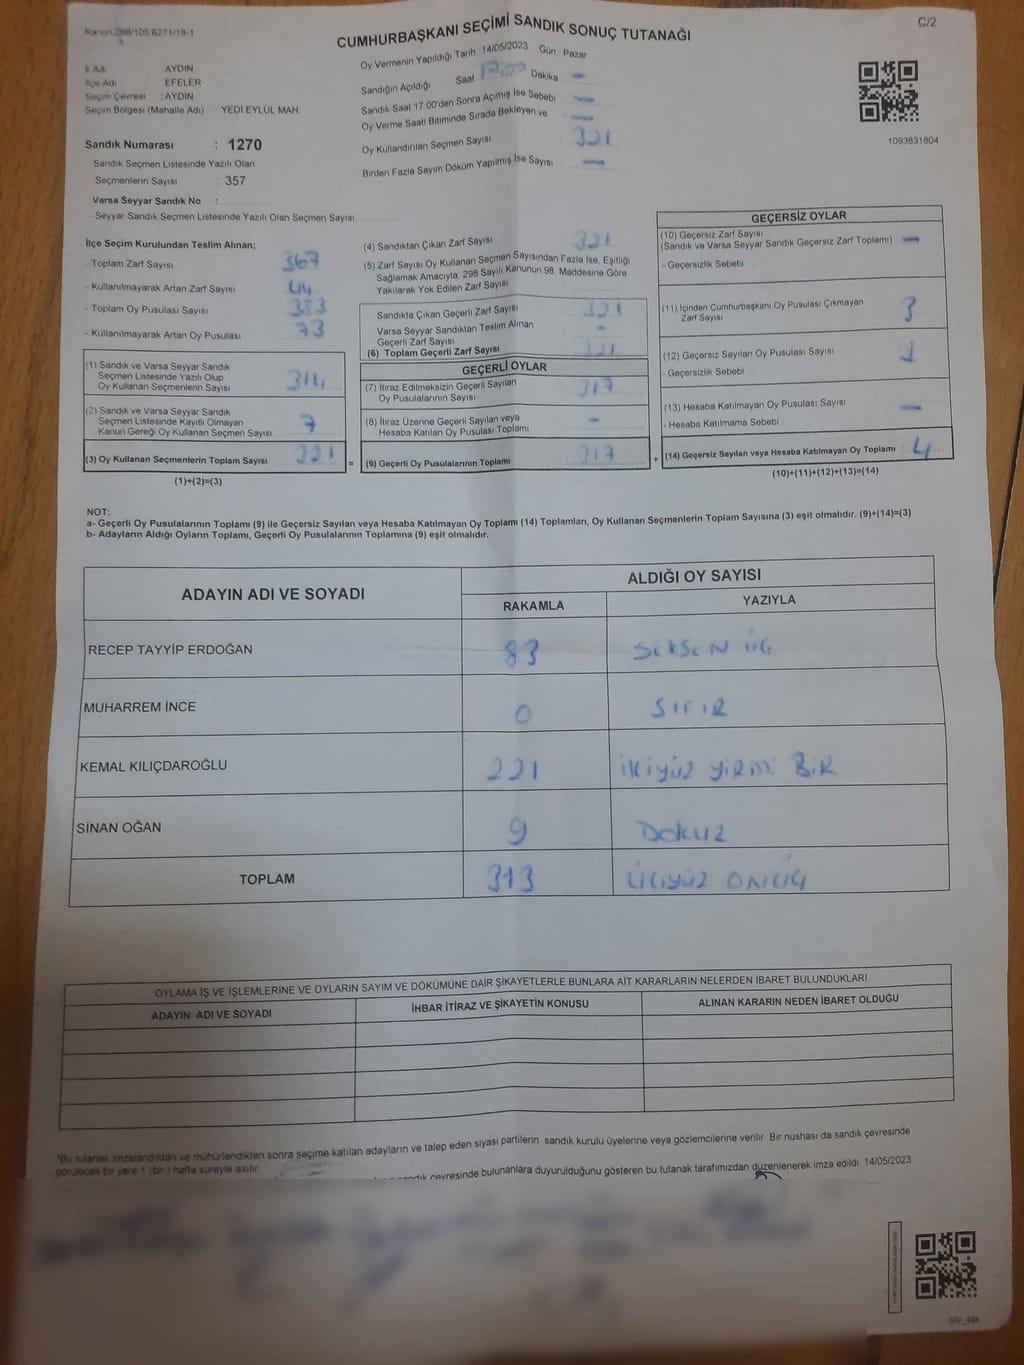 Kanun 298/105 6271/18-1
C/2
CUMHURBAŞKANI SEÇİMİ SANDIK SONUÇ TUTANAĞI
İl Adı AYDIN
İlçe Adı EFELER
Seçim Çevresi : AYDIN
Seçim Bölgesi (Mahalle Adı) YEDİ EYLÜL MAH
Oy Vermenin Yapıldığı Tarih 14/05/2023 Gün Pazar
Sandığın Açıldığı Saat 17:00 Dakika –
Sandık Saat 17.00'den Sonra Açımış İse Sebebi –
Oy Verme Saati Bitiminde Sırada Bekleyen ve –
Oy Kullandırılan Seçmen Sayısı 321
Birden Fazla Sayım Döküm Yapılmış İse Sayısı –
1093831604
Sandık Numarası : 1270
Sandık Seçmen Listesinde Yazılı Olan
Seçmenlerin Sayısı : 357
Varsa Seyyar Sandık No :
- Seyyar Sandık Seçmen Listesinde Yazılı Olan Seçmen Sayısı
İlçe Seçim Kurulundan Teslim Alınan;
- Toplam Zarf Sayısı 367
- Kullanılmayarak Artan Zarf Sayısı 44
- Toplam Oy Pusulası Sayısı 353
- Kullanılmayarak Artan Oy Pusulası 73
(1) Sandık ve Varsa Seyyar Sandık
Seçmen Listesinde Yazılı Olup
Oy Kullanan Seçmenlerin Sayısı 314
(2) Sandık ve Varsa Seyyar Sandık
Seçmen Listesinde Kayıtlı Olmayan
Kanun Gereği Oy Kullanan Seçmen Sayısı 7
(3) Oy Kullanan Seçmenlerin Toplam Sayısı 321
(1)+(2)=(3)
(4) Sandıktan Çıkan Zarf Sayısı 321
(5) Zarf Sayısı Oy Kullanan Seçmen Sayısından Fazla İse, Eşitliği
Sağlamak Amacıyla, 298 Sayılı Kanunun 98. Maddesine Göre
Yakılarak Yok Edilen Zarf Sayısı
Sandıkta Çıkan Geçerli Zarf Sayısı 321
Varsa Seyyar Sandıktan Teslim Alınan
Geçerli Zarf Sayısı –
(6) Toplam Geçerli Zarf Sayısı 321
GEÇERLİ OYLAR
(7) İtiraz Edilmeksizin Geçerli Sayılan
Oy Pusulalarının Sayısı 317
(8) İtiraz Üzerine Geçerli Sayılan veya
Hesaba Katılan Oy Pusulası Toplamı –
= (9) Geçerli Oy Pusulalarının Toplamı 317 +
GEÇERSİZ OYLAR
(10) Geçersiz Zarf Sayısı
(Sandık ve Varsa Seyyar Sandık Geçersiz Zarf Toplamı) –
- Geçersizlik Sebebi
(11) İçinden Cumhurbaşkanı Oy Pusulası Çıkmayan
Zarf Sayısı 3
(12) Geçersiz Sayılan Oy Pusulası Sayısı 1
- Geçersizlik Sebebi
(13) Hesaba Katılmayan Oy Pusulası Sayısı –
- Hesaba Katılmama Sebebi
(14) Geçersiz Sayılan veya Hesaba Katılmayan Oy Toplamı 4
(10)+(11)+(12)+(13)=(14)
NOT:
a- Geçerli Oy Pusulalarının Toplamı (9) ile Geçersiz Sayılan veya Hesaba Katılmayan Oy Toplamı (14) Toplamları, Oy Kullanan Seçmenlerin Toplam Sayısına (3) eşit olmalıdır. (9)+(14)=(3)
b- Adayların Aldığı Oyların Toplamı, Geçerli Oy Pusulalarının Toplamına (9) eşit olmalıdır.
ADAYIN ADI VE SOYADI
ALDIĞI OY SAYISI
RAKAMLA YAZIYLA
RECEP TAYYİP ERDOĞAN 83 SEKSEN ÜÇ
MUHARREM İNCE 0 SIFIR
KEMAL KILIÇDAROĞLU 221 İKİYÜZ YİRMİ BİR
SİNAN OĞAN 9 DOKUZ
TOPLAM 313 ÜÇYÜZ ONÜÇ
OYLAMA İŞ VE İŞLEMLERİNE VE OYLARIN SAYIM VE DÖKÜMÜNE DAİR ŞİKAYETLERLE BUNLARA AİT KARARLARIN NELERDEN İBARET BULUNDUKLARI
ADAYIN ADI VE SOYADI İHBAR İTİRAZ VE ŞİKAYETİN KONUSU ALINAN KARARIN NEDEN İBARET OLDUĞU
*Bu tutanak imzalandıktan ve mühürlendikten sonra seçime katılan adayların ve talep eden siyasi partilerin sandık kurulu üyelerine veya gözlemcilerine verilir Bir nüshası da sandık çevresinde
görülecek bir yere 1 (bir ) hafta süreyle asılır
sandık çevresinde bulunanlara duyurulduğunu gösteren bu tutanak tarafımızdan düzenlenerek imza edildi 14/05/2023